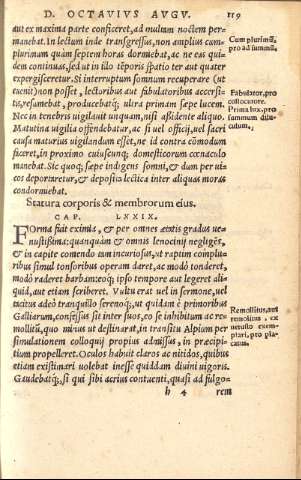 D. OCTAVIUS AUGU. 119
aut ex maxima parte conficeret, ad multam noctem per-
manebat. In lectum inde transgressus, non amplius cum
plurimum quàm septem horas dormiebat, ac ne eas qui-
dem continuas, sed ut in illo tẽporis spatio ter aut quater
expergisceretur. Si interruptum somnum recuperare (ut
euenit) non posset, lectoribus aut fabulatoribus accersi-
tis, resumebat, producebatq; ultra primam sæpe lucem.
Nec in tenebris uigilauit unquam, nisi asidente aliquo.
Matutina uigilia offendebatur, ac si uel officij, uel sacri
causa maturius uigilandum esset, ne id contra cõmodum
faceret, in proximo cuiuscunq; domesticorum cœnaculo
manebat. Sic quoq; sæpe indigens somni, & dum per ui-
cos deportaretur, & deposita lectica inter aliquas moras
condormiebat.
Statura corporis & membrorum eius.
CAP. LXXIX.
FOrma fuit eximia, & per omnes ætatis gradus ue-
nustißima: quanquàm & omnis lenocinij negligẽs,
& in capite comendo tam incuriosus, ut raptim complu-
ribus simul tonsoribus operam daret, ac modò tonderet,
modò raderet barbam: eoq; ipso tempore aut legeret ali-
quid, aut etiam scriberet. Vultu erat uel in sermone, uel
tacitus adeò tranquillo serenoq;, ut quidam è primoribus
Galliarum, confessus sit inter suos, eo se inhibitum ac re-
mollitũ, quo minus ut destinarat, in transitu Alpium per
simulationem colloquij propius admissus, in præcipi-
tium propelleret. Oculos habuit claros ac nitidos, quibus
etiam existimari uolebat inesse quiddam diuini uigoris.
Gaudebatq;, si qui sibi acrius contuenti, quasi ad fulgo-
h 4 rem
Cum plurimũ,
pro ad summũ.
Fabulator, pro
Prima lux, pro
Remollitus, aut
remolitus, ex
uetusto exem-
plari, pro pla-
catus.